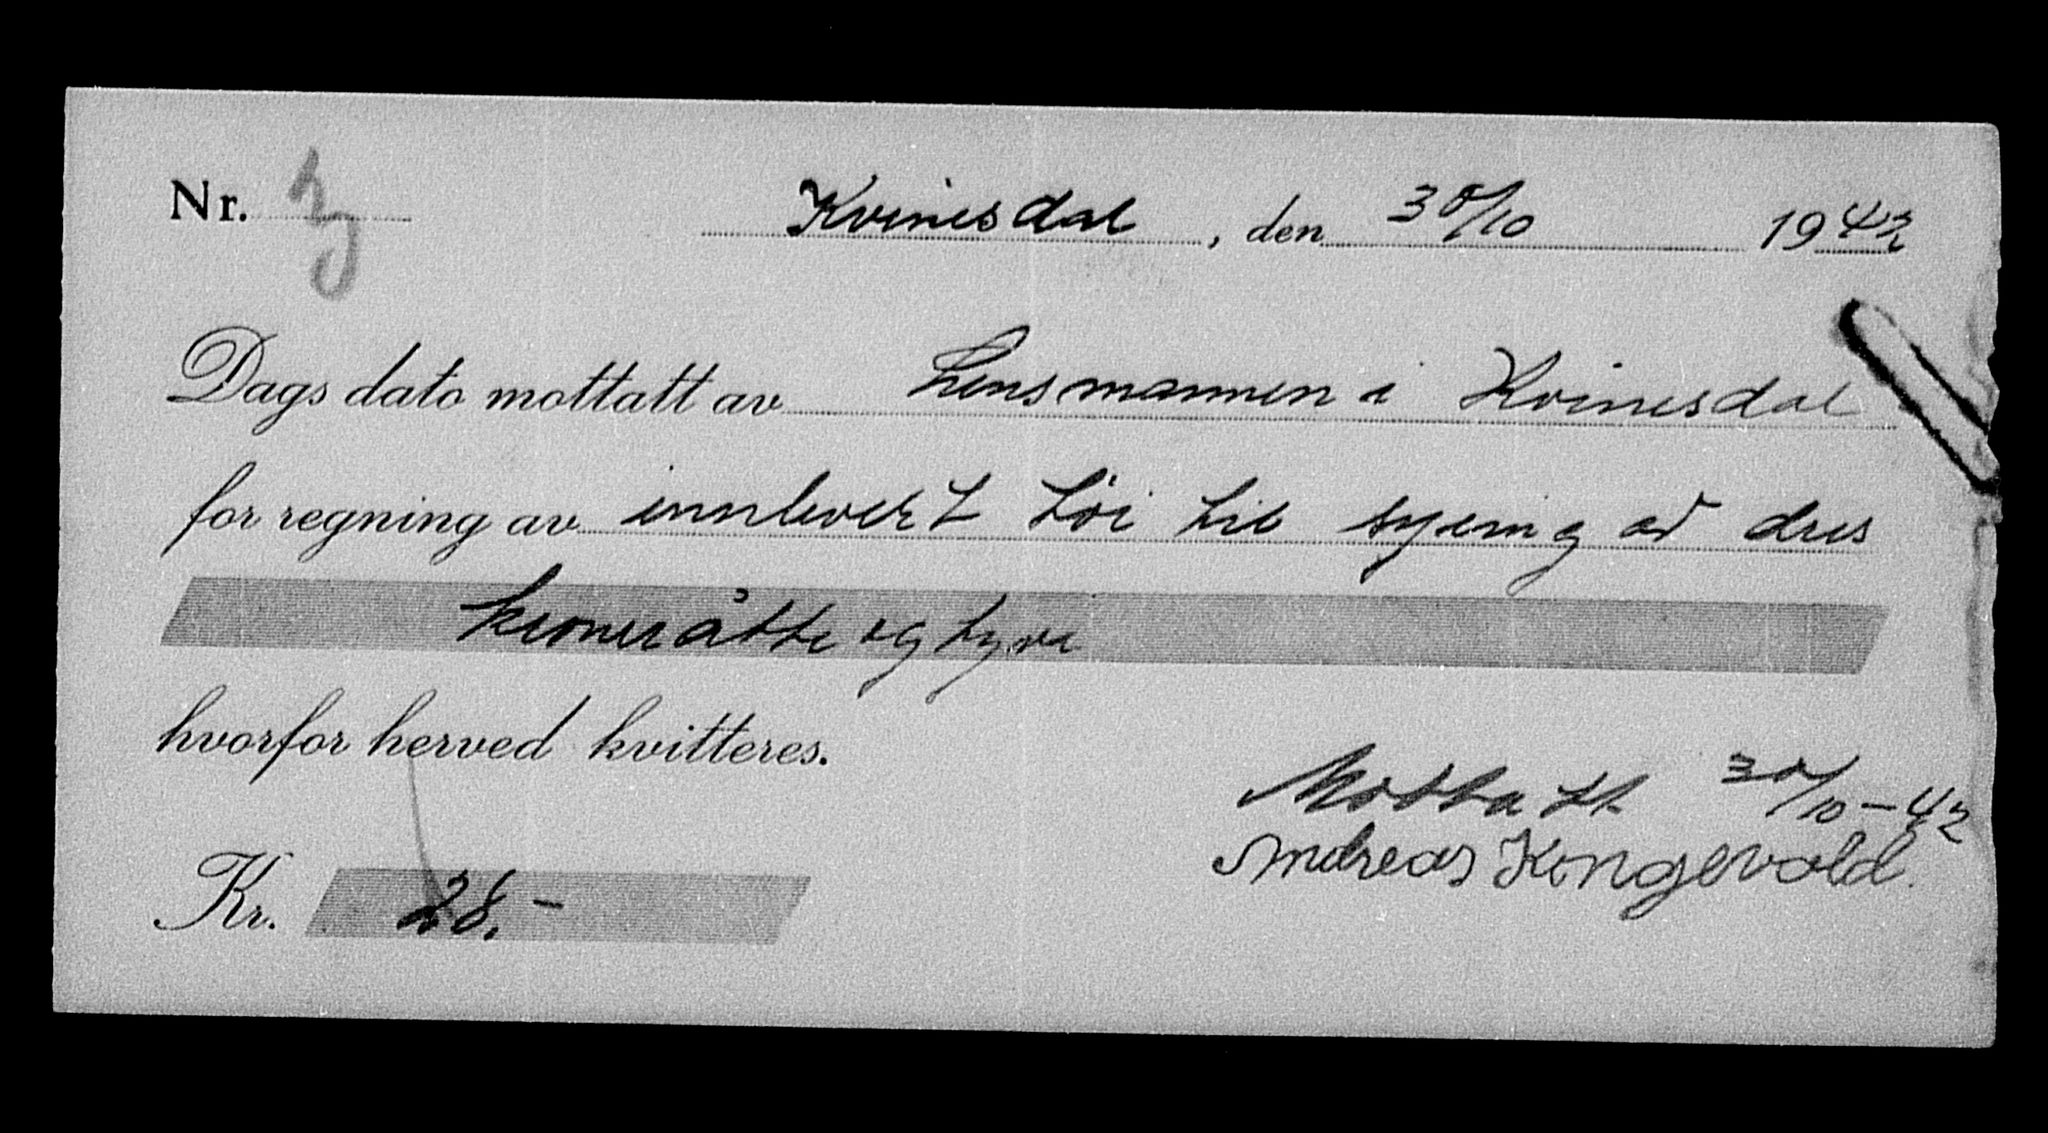 Nr. 3
Kvinesdal, den 30/10 1942
Dags dato mottatt av Lensmannen i Kvinesdal
for regning av innlevert tøi til syeing av dres
kroner åtte og tyve
hvorfor herved kvitteres.
Mottatt 30/10-42
Andreas Kongevold.
Kr. 28.-